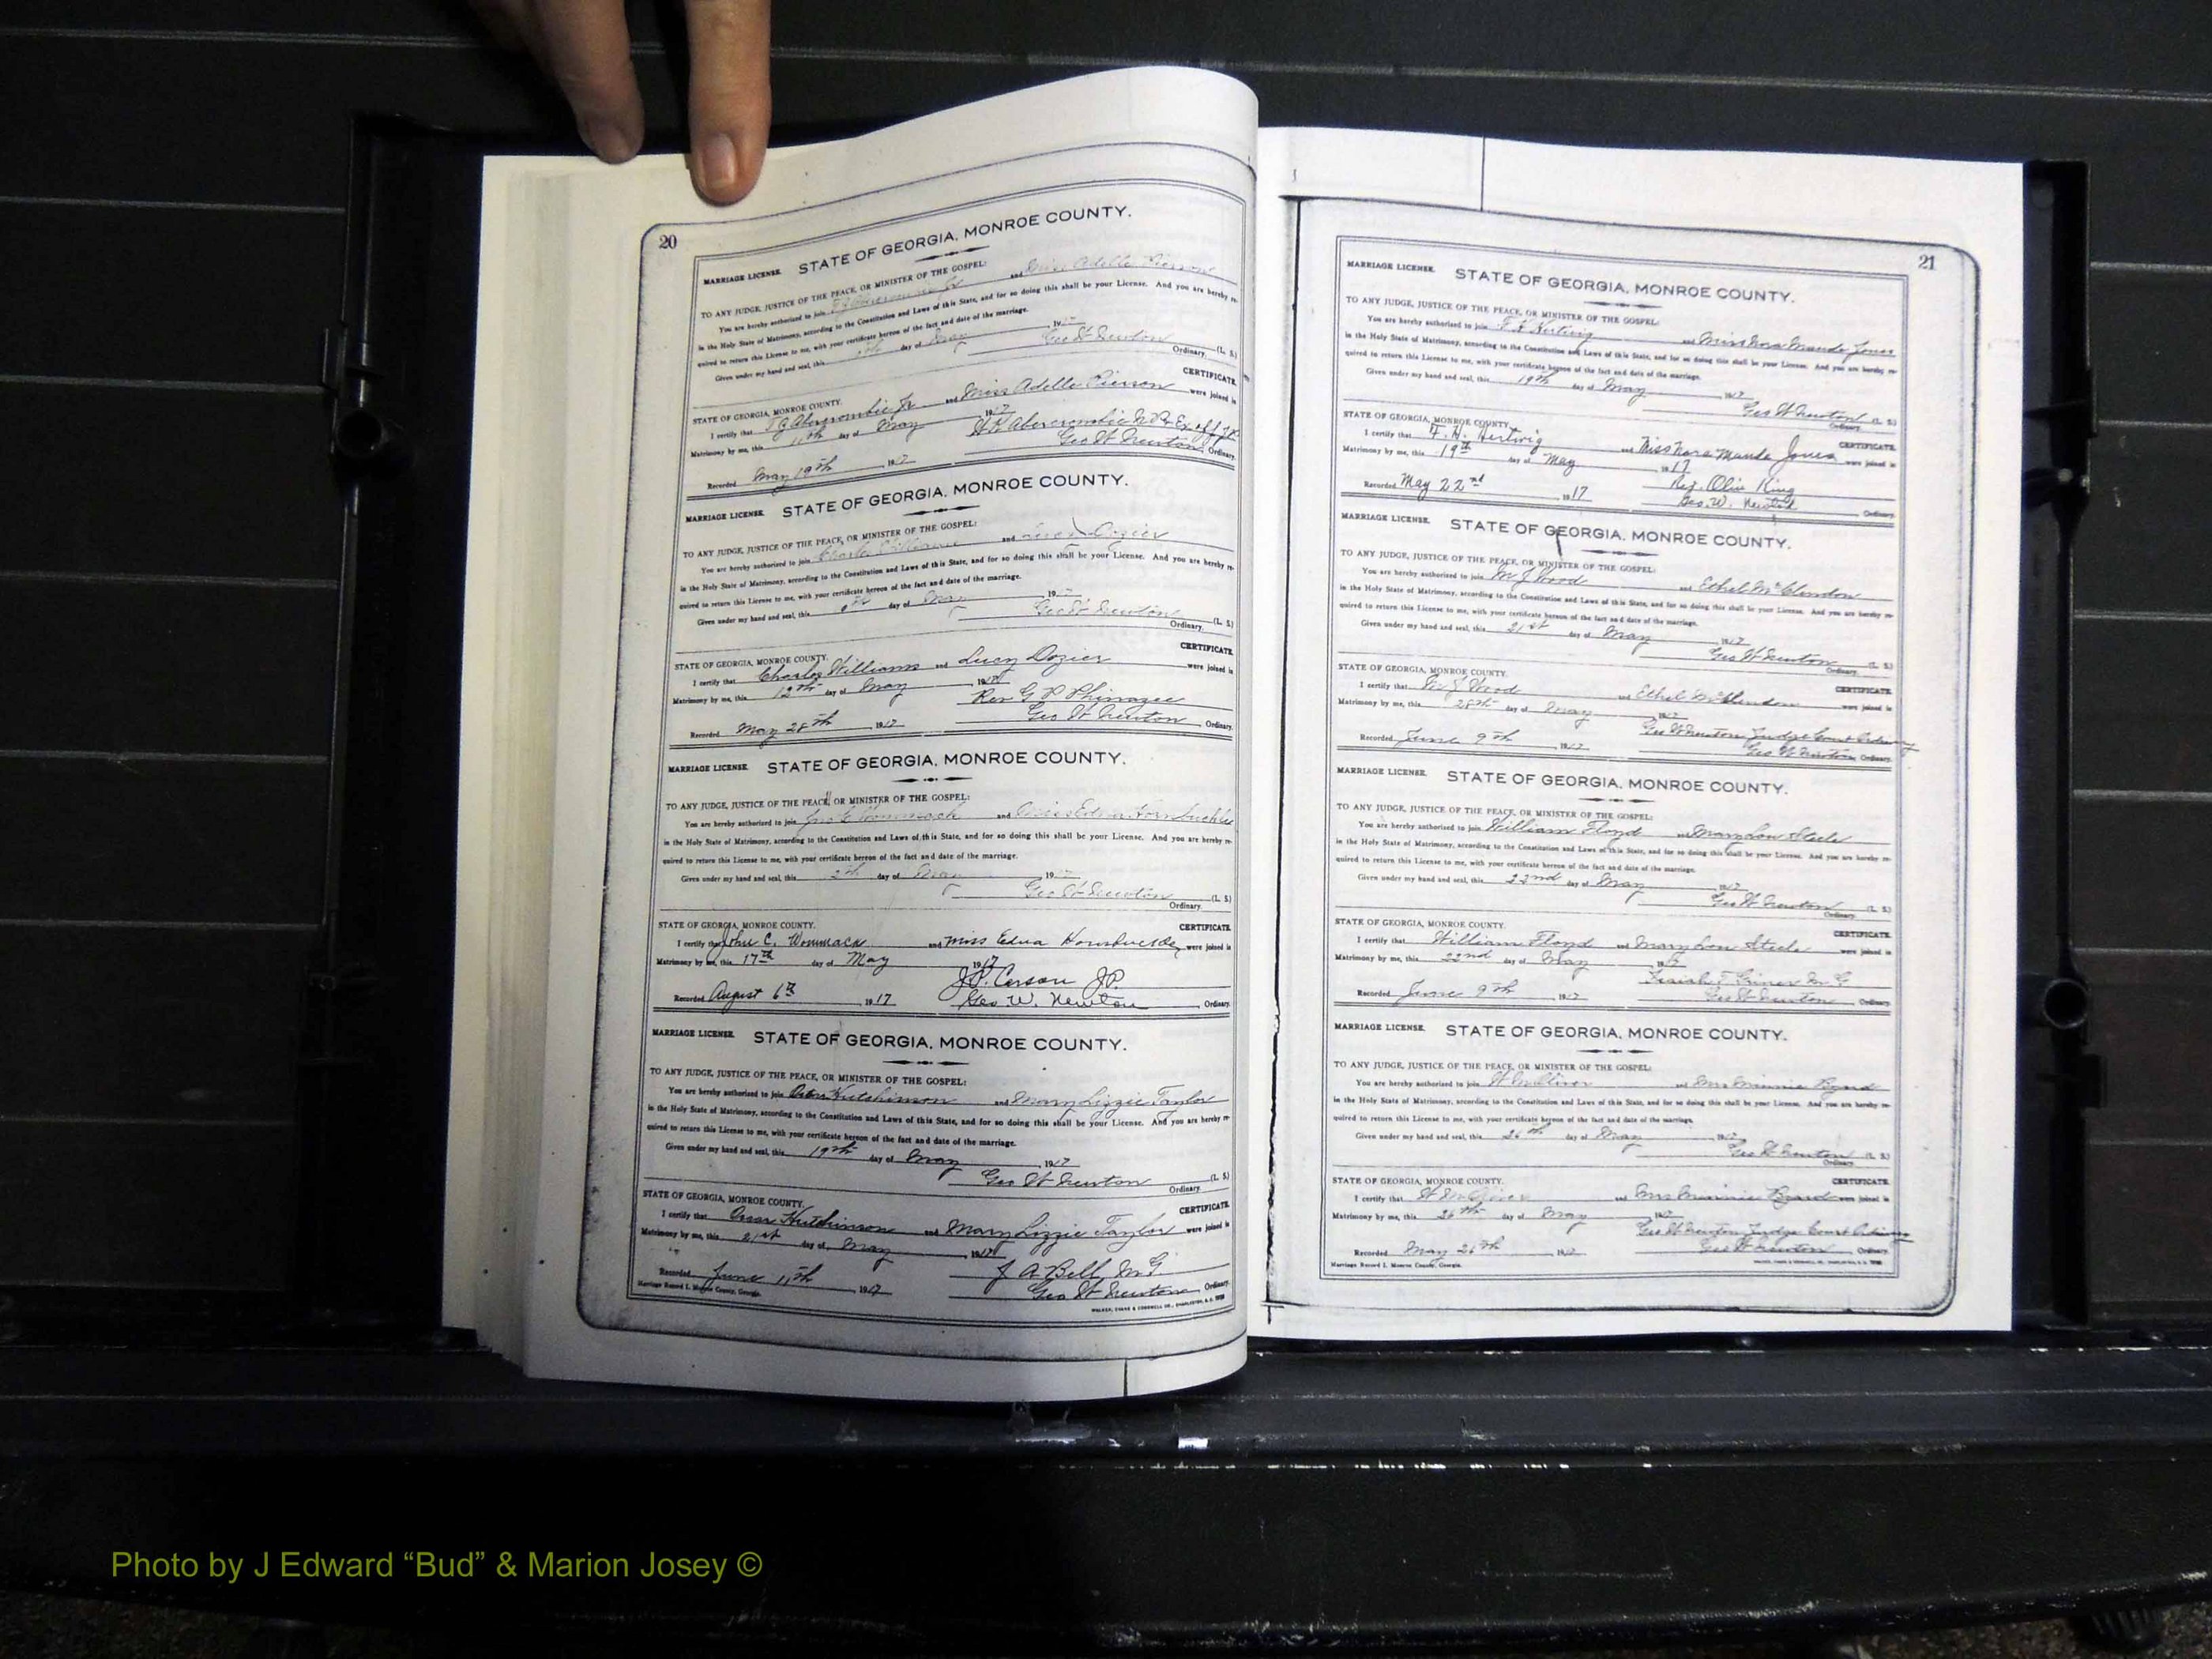 20
STATE OF GEORGIA, MONROE COUNTY.
MARRIAGE LICENSE.
TO ANY JUDGE, JUSTICE OF THE PEACE, OR MINISTER OF THE GOSPEL:
You are hereby authorized to join and Miss Adelle Pierson
in the Holy State of Matrimony, according to the Constitution and Laws of this State, and for so doing this shall be your License. And you are hereby re-
quired to return this License to me, with your certificate hereon of the fact and date of the marriage.
Given under my hand and seal, this day of May 19
Geo W Newton (L. S.)
Ordinary.
CERTIFICATE.
STATE OF GEORGIA, MONROE COUNTY.
I certify that Abercrombie Jr and Miss Adelle Pierson were joined in
Matrimony by me, this 11th day of May 1917
Abercrombie
Recorded May 19th 1917 Geo W Newton Ordinary.
STATE OF GEORGIA, MONROE COUNTY.
MARRIAGE LICENSE.
TO ANY JUDGE, JUSTICE OF THE PEACE, OR MINISTER OF THE GOSPEL:
You are hereby authorized to join Charles Williams and Lucy Dozier
in the Holy State of Matrimony, according to the Constitution and Laws of this State, and for so doing this shall be your License. And you are hereby re-
quired to return this License to me, with your certificate hereon of the fact and date of the marriage.
Given under my hand and seal, this day of May 19
Geo W Newton (L. S.)
Ordinary.
CERTIFICATE.
STATE OF GEORGIA, MONROE COUNTY.
I certify that Charles Williams and Lucy Dozier were joined in
Matrimony by me, this 12th day of May 1917
Rev G P Phinazee
Recorded May 28th 1917 Geo W Newton Ordinary.
MARRIAGE LICENSE. STATE OF GEORGIA, MONROE COUNTY.
TO ANY JUDGE, JUSTICE OF THE PEACE, OR MINISTER OF THE GOSPEL:
You are hereby authorized to join Jno C Wommack and Miss Edna Hornbuckle
in the Holy State of Matrimony, according to the Constitution and Laws of this State, and for so doing this shall be your License. And you are hereby re-
quired to return this License to me, with your certificate hereon of the fact and date of the marriage.
Given under my hand and seal, this day of May 19
Geo W Newton (L. S.)
Ordinary.
STATE OF GEORGIA, MONROE COUNTY. CERTIFICATE.
I certify that John C. Wommack and Miss Edna Hornbuckle, were joined in
Matrimony by me, this 17th day of May 1917
J.P. Carson J.P.
Recorded August 6th 1917 Geo W. Newton Ordinary.
MARRIAGE LICENSE. STATE OF GEORGIA, MONROE COUNTY.
TO ANY JUDGE, JUSTICE OF THE PEACE, OR MINISTER OF THE GOSPEL:
You are hereby authorized to join Hutchinson and Mary Lizzie Taylor
in the Holy State of Matrimony, according to the Constitution and Laws of this State, and for so doing this shall be your License. And you are hereby re-
quired to return this License to me, with your certificate hereon of the fact and date of the marriage.
Given under my hand and seal, this 19th day of May 1917
Geo W Newton (L. S.)
Ordinary.
STATE OF GEORGIA, MONROE COUNTY. CERTIFICATE.
I certify that Oscar Hutchinson and Mary Lizzie Taylor were joined in
Matrimony by me, this 21st day of May 1917
J A Bell M G
Recorded June 11th 1917 Geo W Newton Ordinary.
Marriage Record I, Monroe County, Georgia.
WALKER, EVANS & COGSWELL CO., CHARLESTON, S. C.
21
MARRIAGE LICENSE. STATE OF GEORGIA, MONROE COUNTY.
TO ANY JUDGE, JUSTICE OF THE PEACE, OR MINISTER OF THE GOSPEL:
You are hereby authorized to join F H Hertwig and Miss Nora Maude Jones
in the Holy State of Matrimony, according to the Constitution and Laws of this State, and for so doing this shall be your License. And you are hereby re-
quired to return this License to me, with your certificate hereon of the fact and date of the marriage.
Given under my hand and seal, this 19th day of May 1917
Geo W Newton (L. S.)
Ordinary.
STATE OF GEORGIA, MONROE COUNTY. CERTIFICATE.
I certify that F. H. Hertwig and Miss Nora Maude Jones were joined in
Matrimony by me, this 19th day of May 1917
Rev. Olin King
Recorded May 22nd 1917 Geo. W. Newton Ordinary.
MARRIAGE LICENSE. STATE OF GEORGIA, MONROE COUNTY.
TO ANY JUDGE, JUSTICE OF THE PEACE, OR MINISTER OF THE GOSPEL:
You are hereby authorized to join Wood and Ethel McClendon
in the Holy State of Matrimony, according to the Constitution and Laws of this State, and for so doing this shall be your License. And you are hereby re-
quired to return this License to me, with your certificate hereon of the fact and date of the marriage.
Given under my hand and seal, this 21st day of May 1917
Geo W Newton (L. S.)
Ordinary.
STATE OF GEORGIA, MONROE COUNTY. CERTIFICATE.
I certify that Wood and Ethel McClendon were joined in
Matrimony by me, this 28th day of May 1917
Geo W Newton Judge Court Ordinary
Recorded June 9th 1917 Geo W Newton Ordinary.
MARRIAGE LICENSE. STATE OF GEORGIA, MONROE COUNTY.
TO ANY JUDGE, JUSTICE OF THE PEACE, OR MINISTER OF THE GOSPEL:
You are hereby authorized to join William Floyd and Mary Lou Steele
in the Holy State of Matrimony, according to the Constitution and Laws of this State, and for so doing this shall be your License. And you are hereby re-
quired to return this License to me, with your certificate hereon of the fact and date of the marriage.
Given under my hand and seal, this 22nd day of May 1917
Geo W Newton (L. S.)
Ordinary.
STATE OF GEORGIA, MONROE COUNTY. CERTIFICATE.
I certify that William Floyd and Mary Lou Steele were joined in
Matrimony by me, this 22nd day of May 19
Isaiah T M G
Recorded June 9th 1917 Geo W Newton Ordinary.
MARRIAGE LICENSE. STATE OF GEORGIA, MONROE COUNTY.
TO ANY JUDGE, JUSTICE OF THE PEACE, OR MINISTER OF THE GOSPEL:
You are hereby authorized to join and Mrs Minnie Byard
in the Holy State of Matrimony, according to the Constitution and Laws of this State, and for so doing this shall be your License. And you are hereby re-
quired to return this License to me, with your certificate hereon of the fact and date of the marriage.
Given under my hand and seal, this 26th day of May 1917
Geo W Newton (L. S.)
Ordinary.
STATE OF GEORGIA, MONROE COUNTY. CERTIFICATE.
I certify that and Mrs Minnie Byard were joined in
Matrimony by me, this 26th day of May 1917
Geo W Newton Judge Court Ordinary
Recorded May 26th 1917 Geo W Newton Ordinary.
Marriage Record I, Monroe County, Georgia.
WALKER, EVANS & COGSWELL CO., CHARLESTON, S. C.
Photo by J Edward “Bud” & Marion Josey ©